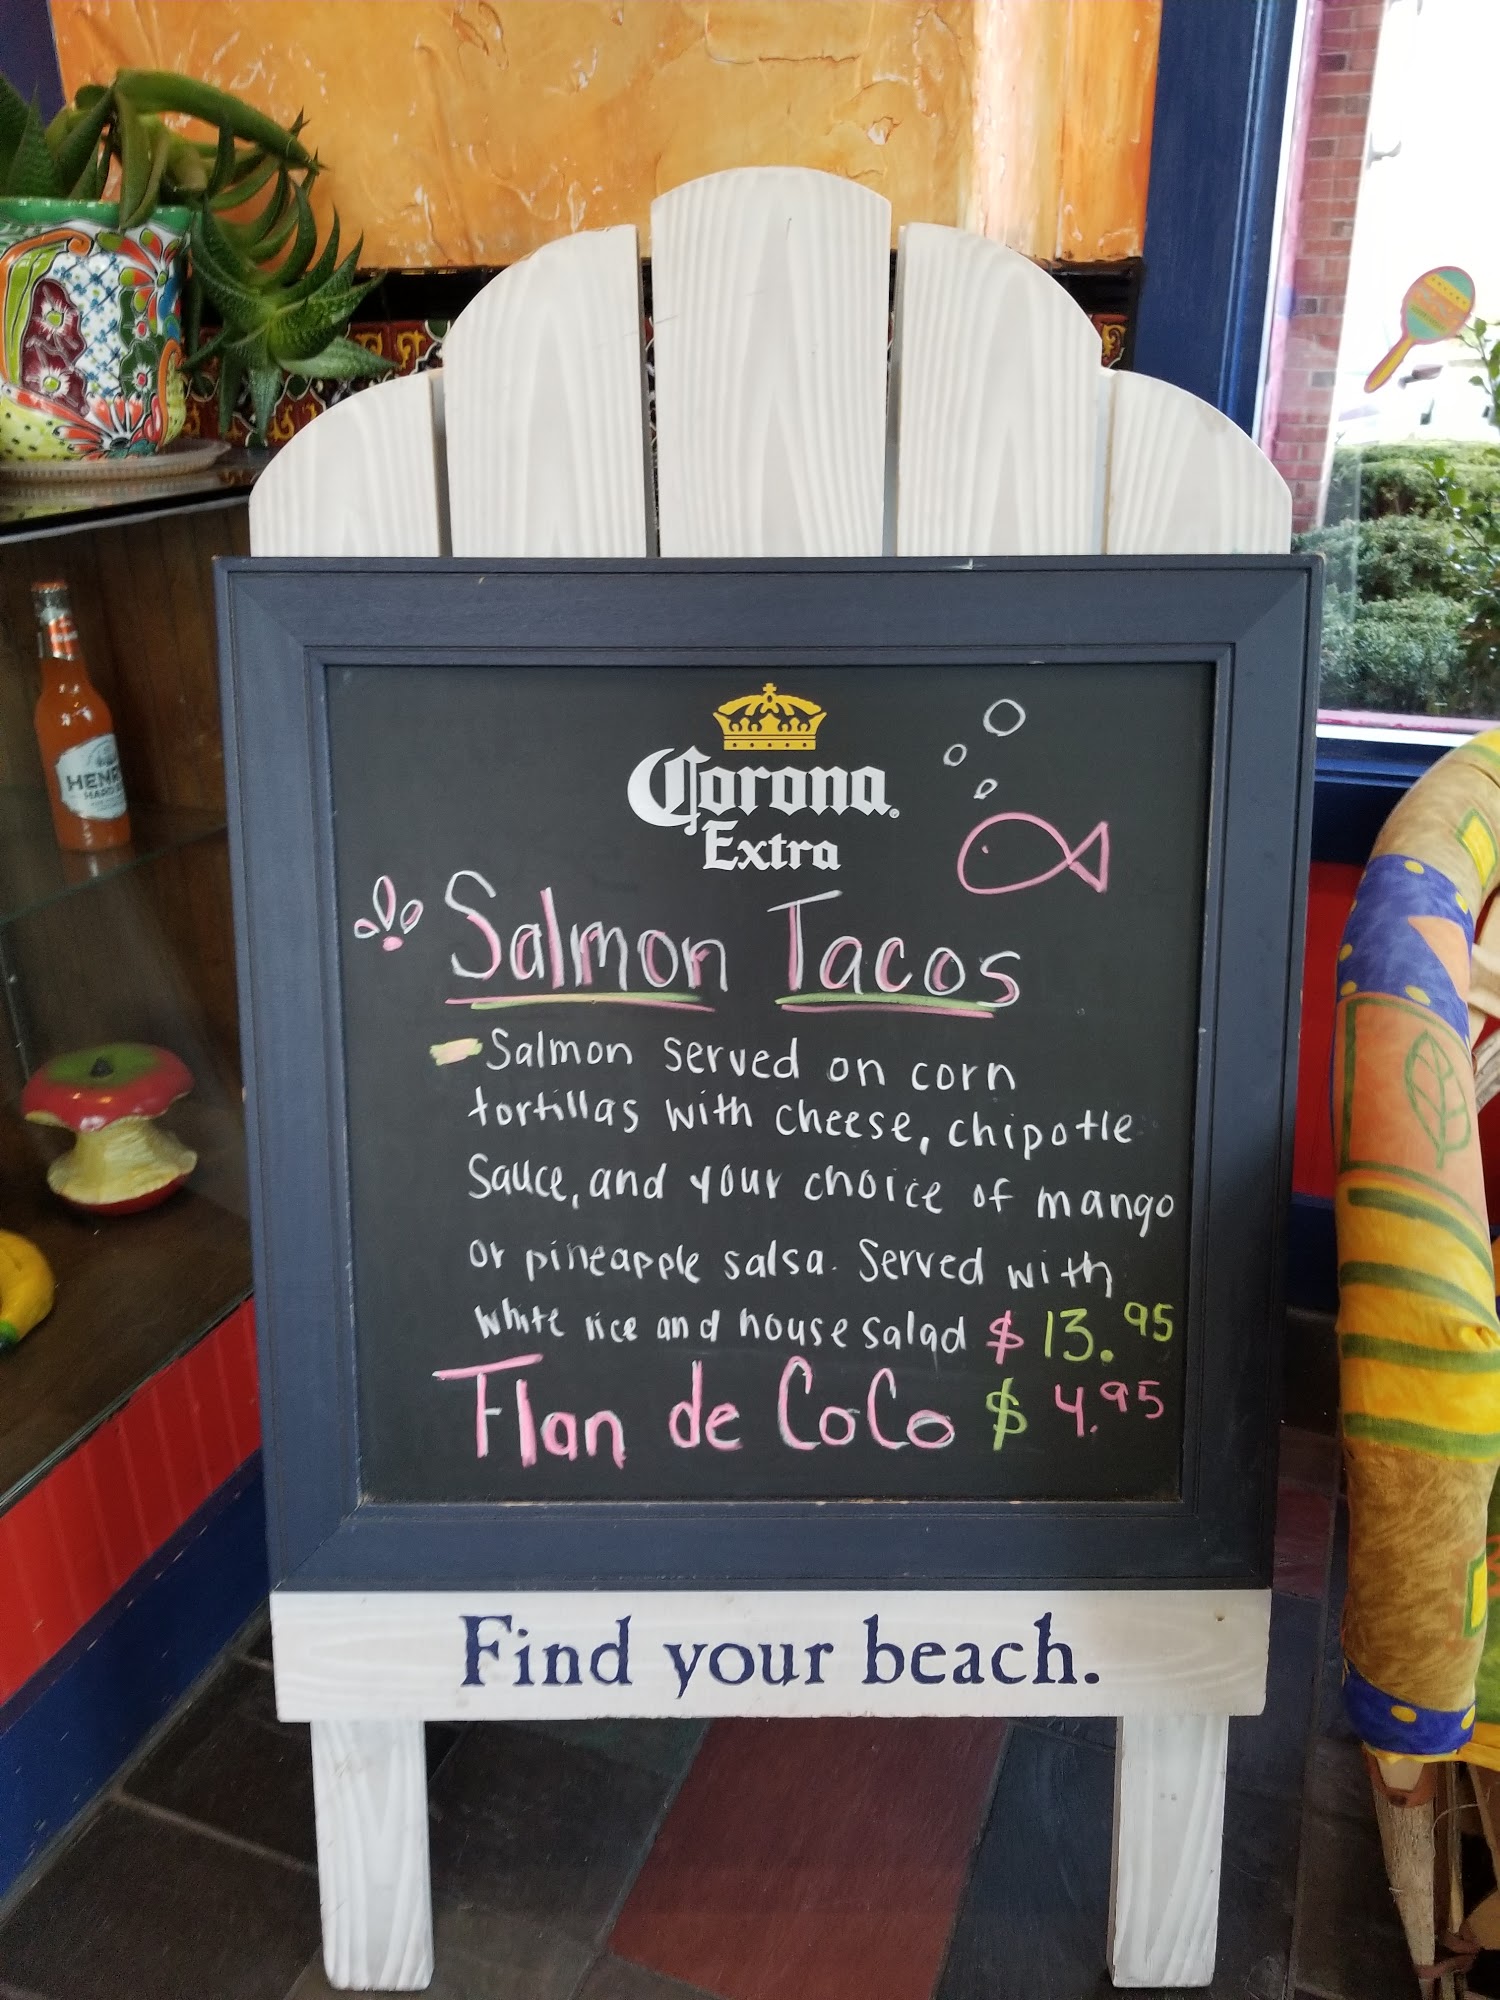 Corona
Extra
Salmon Tacos
Salmon served on corn
tortillas with cheese, chipotle
Sauce, and your choice of mango
or pineapple salsa. Served with
white rice and house salad $13.95
Flan de CoCo $4.95
Find your beach.
HENRY
HARD